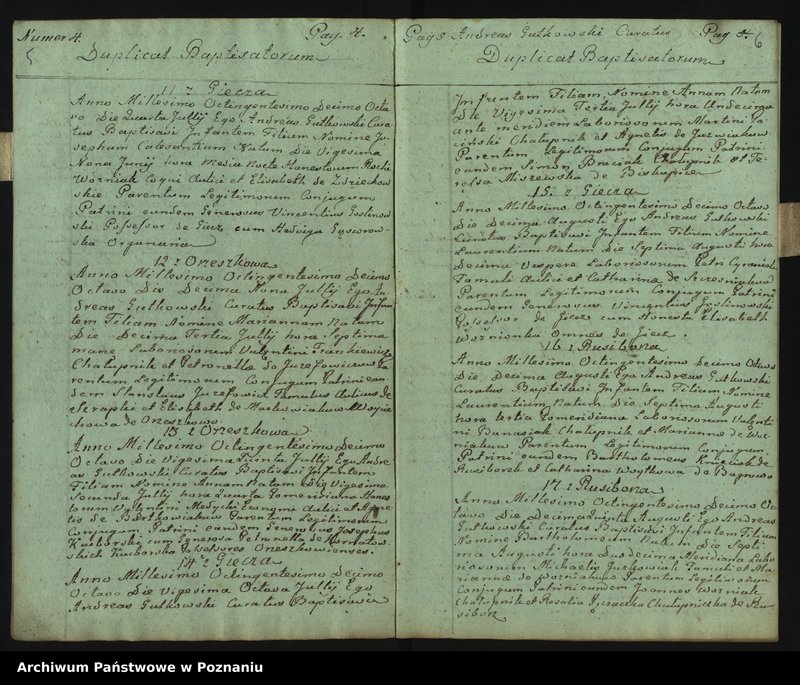 Numer 4. Pag. 4.
5
Duplicat Baptisatorum
11 z Giecza
Anno Millesimo Octingentesimo Decimo Octa
vo Die Quarta Julÿ Ego Andreas Gutkowski Cura
tus Baptisavi Infantem Filium Nomine Jo
sephum Calecentium Natum Die Vigesima
Nona Junÿ hora Media Nocte Honestorum Rochi
Woźniak Coqui Aulici et Elisabeth de
skie Parentum Legitimorum Conjugum
Patrini eundem Generosus Vincentius Goslinow
ski Possessor de Giecz cum Hedviga Gąsiorow
ska Organaria
12 z Orzeszkowa
Anno Millesimo Octingentesimo Decimo
Octavo Die Decima Nona Julÿ Ego An
dreas Gutkowski Curatus Baptisavi Infan
tem Filiam Nomine Mariannam Natam
Die Decima Tertia Julÿ hora Septima
mane Laboriosorum Valentini Frankiewicz
Chałupnik et Petronella de Jozefowiczow Pa
rentum Legitimorum Conjugum Patrini ean
dem Stanislaus Jozefowicz Famulus Aulicus de
et Elisabeth de
chowa de Orzeszkowo
13 z Orzeszkowa
Anno Millesimo Octingentesimo Decimo
Octavo Die Vigesima Quinta Julÿ Ego Andre
as Gutkowski Curatus Baptisavi Infantem
Filiam Nomine Annam Natam Die Vigesima
Secunda Julÿ hora Quarta Pomeridiana Hones
torum Valentini Œconomi Aulici et Agne
tis de Parentum Legitimorum
Conjugum Patrini eandem Generosus Josephus
Kuiborski cum Generosa Petronella de
skich Kuiborska Possessores Orzeszkowienses.
14 z Giecza
Anno Millesimo Octingentesimo Decimo
Octavo Die Vigesima Octava Julÿ Ego
Andreas Gutkowski Curatus Baptisavi
Pag 5 Andreas Gutkowski Curatus Pag 5. 6
Duplicat Baptisatorum
Infantem Filiam Nomine Annam Natam
Die Vigesima Tertia Julÿ hora Undecima
ante meridiem Laboriosorum Martini
Chałupnik et Agnetis de
Parentum Legitimorum Conjugum Patrini
eandem Simon Braciak Chałupnik et Te
ressa Miszewska de Biskupice
15 z Giecza
Anno Millesimo Octingentesimo Decimo Octavo
Die Decima Augusti Ego Andreas Gutkowski
Curatus Baptisavi Infantem Filium Nomine
Laurentium Natum Die Septima Augusti hora
Decima Vespere Laboriosorum Petri
Famuli Aulici et Catharinæ de
Parentum Legitimorum Conjugum Patrini
eundem Generosus Vincentius Goslinowski
Possessor de Giecz cum Honesta Elisabeth
Woznionka Omnes de Giecz.
16 z Rusibora
Anno Millesimo Octingentesimo Decimo Octavo
Die Decima Augusti Ego Andreas Gutkowski
Curatus Baptisavi Infantem Filium Nomine
Laurentium Natum Die Septima Augusti
hora tertia Pomeridiana Laboriosorum Valenti
ni Banasiak Chałupnik et Mariannæ de Woz
niakow Parentum Legitimorum Conjugum
Patrini eundem Bartholomeus de
Rusiborek et Catharina Woytkowa de Bagrowo
17 z Rusibora
Anno Millesimo Octingentesimo Decimo Oc
tavo Die Decima Quinta Augusti Ego Andreas
Gutkowski Curatus Baptisavi Infantem Filium
Nomine Bartholomeum Natum Die Septi
ma Augusti hora Duodecima Meridiana Labo
riosorum Michaelis Famuli et Ma
riannæ de Wozniakow Parentum Legitimorum
Conjugum Patrini eundem Joannes Wozniak
Chałupnik et Rosalia Chałupniczka de Ru
sibor
Archiwum Państwowe w Poznaniu